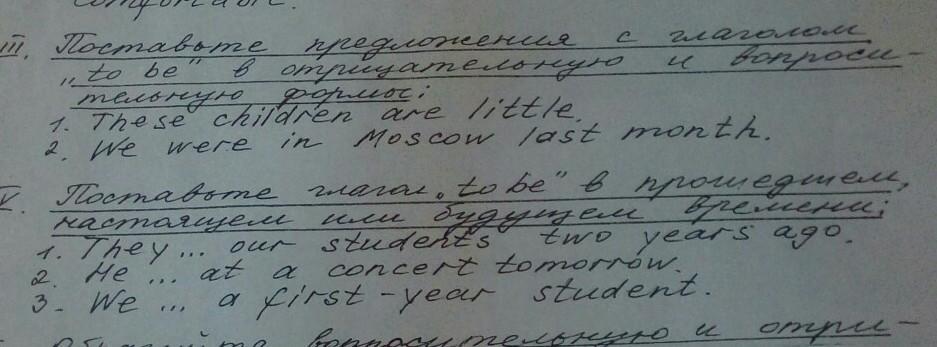 comfortable.
III. Поставьте предложения с глаголом
"to be" в отрицательную и вопроси-
тельную формы:
1. These children are little.
2. We were in Moscow last month.
V. Поставьте глагол "to be" в прошедшем,
настоящем или будущем времени:
1. They ... our students two years ago.
2. He ... at a concert tomorrow.
3. We ... a first-year student.
вопросительную и отри-